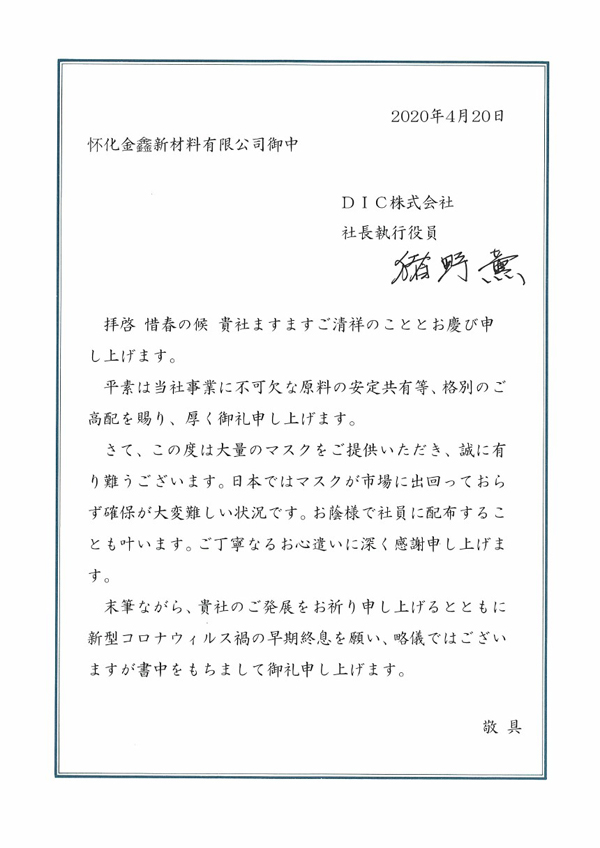 2020年4月20日
怀化金鑫新材料有限公司御中
ＤＩＣ株式会社
社長執行役員
猪野薫
拝啓 惜春の候 貴社ますますご清祥のこととお慶び申
し上げます。
平素は当社事業に不可欠な原料の安定共有等、格別のご
高配を賜り、厚く御礼申し上げます。
さて、この度は大量のマスクをご提供いただき、誠に有
り難うございます。日本ではマスクが市場に出回っておら
ず確保が大変難しい状況です。お蔭様で社員に配布するこ
とも叶います。ご丁寧なるお心遣いに深く感謝申し上げま
す。
末筆ながら、貴社のご発展をお祈り申し上げるとともに
新型コロナウィルス禍の早期終息を願い、略儀ではござい
ますが書中をもちまして御礼申し上げます。
敬具